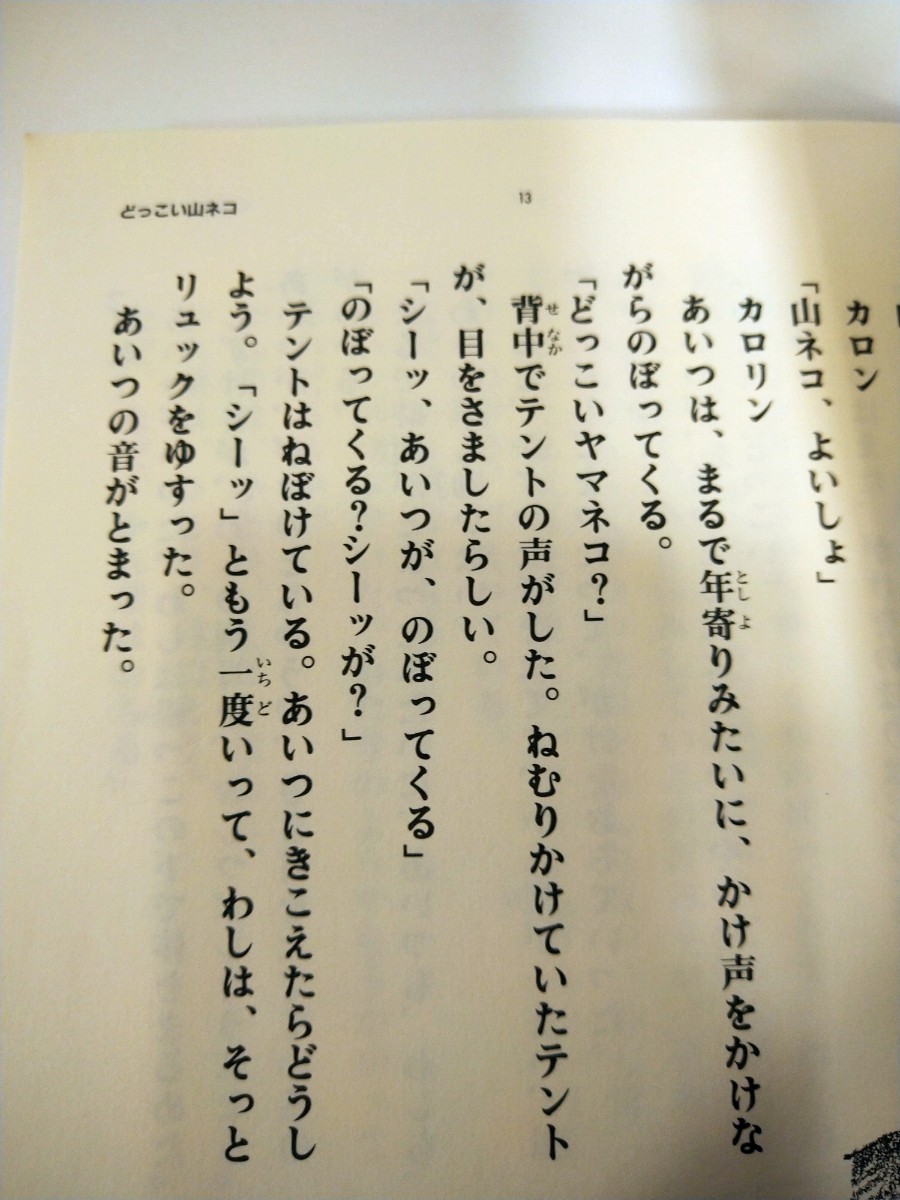 どっこい山ネコ
13
カロン
「山ネコ、よいしょ」
カロリン
あいつは、まるで年寄りみたいに、かけ声をかけな
がらのぼってくる。
「どっこいヤマネコ?」
背中でテントの声がした。ねむりかけていたテント
が、目をさましたらしい。
「シーッ、あいつが、のぼってくる」
「のぼってくる?シーッが?」
テントはねぼけている。あいつにきこえたらどうし
よう。「シーッ」ともう一度いって、わしは、そっと
リュックをゆすった。
あいつの音がとまった。